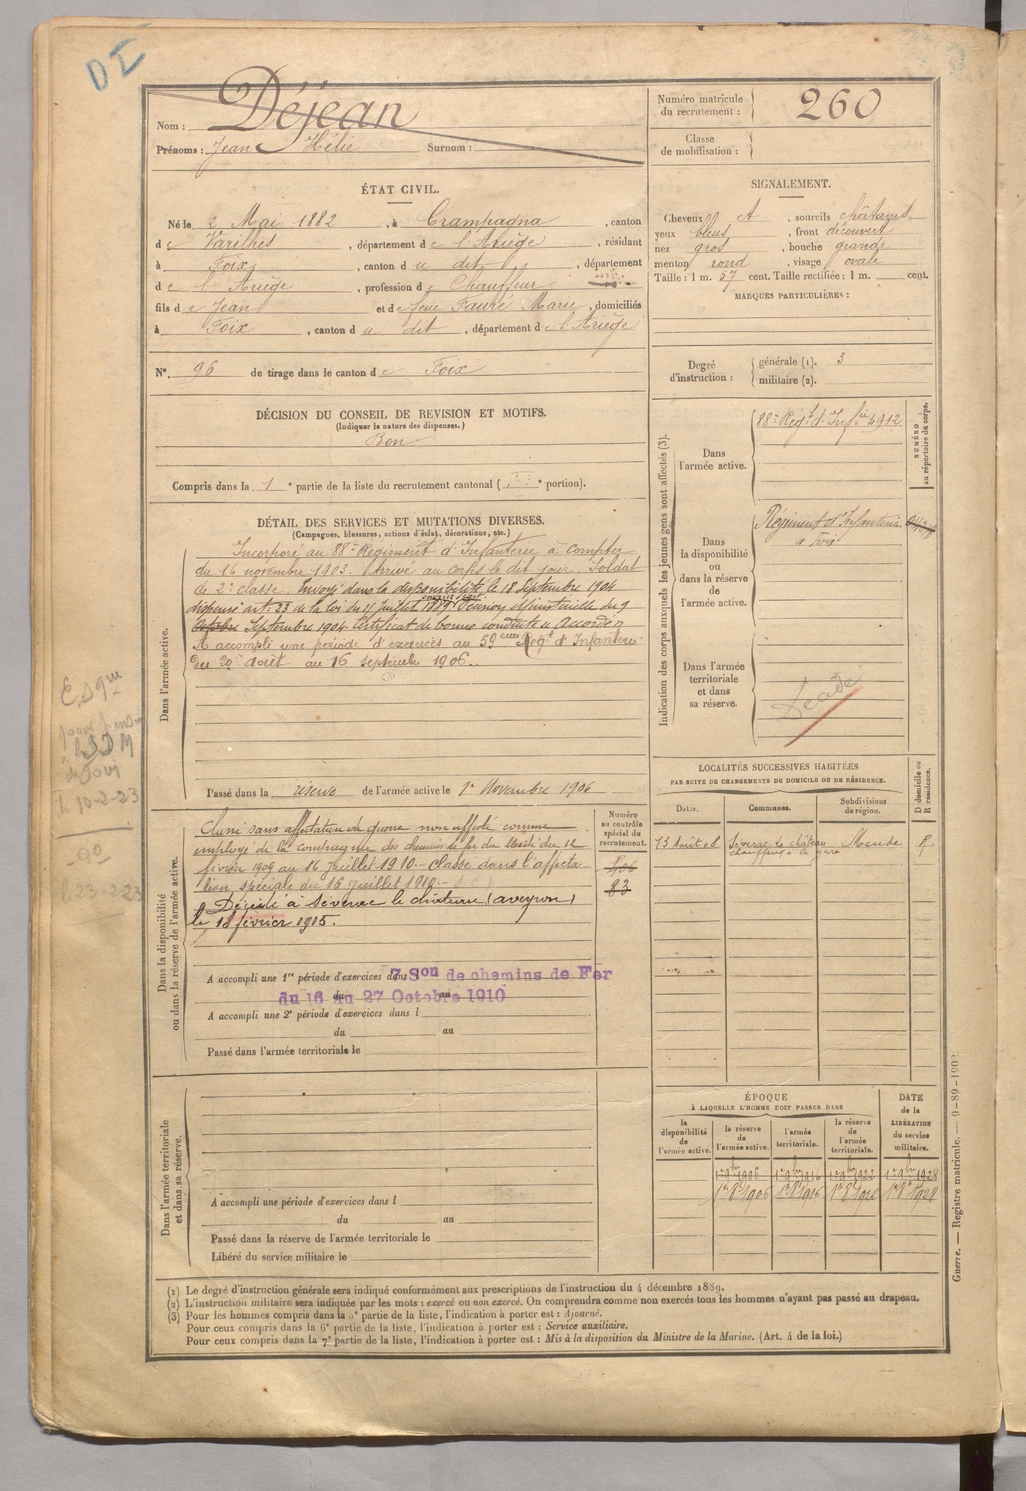 DI
Nom : Déjean
Prénoms : Jean Hélie Surnom :
Numéro matricule du recrutement : 260
Classe de mobilisation :
ÉTAT CIVIL.
Né le 2 Mai 1882, à Crampagna, canton
de Varilhes, département de l'Ariège, résidant
à Foix, canton du dit, département
de l'Ariège, profession de Chauffeur
fils de Jean et de feue Fauré Marie, domiciliés
à Foix, canton du dit, département de l'Ariège
N° 96 de tirage dans le canton de Foix
SIGNALEMENT.
Cheveux et, sourcils châtains
yeux bleus, front découvert
nez gros, bouche grande
menton rond, visage ovale
Taille : 1 m. 57 cent. Taille rectifiée : 1 m. cent.
MARQUES PARTICULIÈRES :
Degré d'instruction : générale (1). 3
militaire (2).
DÉCISION DU CONSEIL DE REVISION ET MOTIFS.
(Indiquer la nature des dispenses.)
Bon
Compris dans la 1e partie de la liste du recrutement cantonal ( e portion).
DÉTAIL DES SERVICES ET MUTATIONS DIVERSES.
(Campagnes, blessures, actions d'éclat, décorations, etc.)
Dans l'armée active.
Incorporé au 88e Régiment d'Infanterie à compter
du 16 novembre 1903. Arrivé au corps le dit jour. Soldat
de 2e classe. Envoyé dans la disponibilité le 18 Septembre 1904
dispensé art. 23 de la loi du 15 juillet 1889. Décision Ministérielle du 9
Septembre 1904. Certificat de bonne conduite "Accordé"
A accompli une période d'exercices au 59eme Régt d'Infanterie
du 20 août au 16 septembre 1906.
Passé dans la réserve de l'armée active le 1er Novembre 1906
Indication des corps auxquels les jeunes gens sont affectés (3).
NUMÉRO au répertoire du corps.
Dans l'armée active.
88e Régt d'Infie 4912
Dans la disponibilité ou dans la réserve de l'armée active.
Régiment d'Infanterie
à Foix
Dans l'armée territoriale et dans sa réserve.
Décédé
Dans la disponibilité ou dans la réserve de l'armée active.
Numéro au contrôle spécial du recrutement.
Classé sans affectation de guerre non affecté comme
employé de la compagnie des chemins de fer du Midi du 12
février 1909 au 16 Juillet 1910. Classé dans l'affecta-
tion spéciale du 16 juillet 1910.
Décédé à Sévérac le château (aveyron)
le 18 février 1915.
83
A accompli une 1re période d'exercices dans 7e Son de chemins de Fer
du 16 au 27 Octobre 1910
A accompli une 2e période d'exercices dans l
du au
Passé dans l'armée territoriale le
LOCALITÉS SUCCESSIVES HABITÉES
PAR SUITE DE CHANGEMENTS DE DOMICILE OU DE RÉSIDENCE.
Dates. Communes. Subdivisions de région. D domicile ou R résidence.
13 Août 08 Séverac le château Mende R.
chauffeur à la gare
Dans l'armée territoriale et dans sa réserve.
A accompli une période d'exercices dans l
du au
Passé dans la réserve de l'armée territoriale le
Libéré du service militaire le
ÉPOQUE
À LAQUELLE L'HOMME DOIT PASSER DANS
la disponibilité de l'armée active.
la réserve de l'armée active.
l'armée territoriale.
la réserve de l'armée territoriale.
DATE de la LIBÉRATION du service militaire.
1er 9bre 1906 1er 9bre 1916 1er 9bre 1922 1er 9bre 1928
1er 8bre 1906 1er 8bre 1916 1er 8bre 1922 1er 8bre 1928
(1) Le degré d'instruction générale sera indiqué conformément aux prescriptions de l'instruction du 4 décembre 1889.
(2) L'instruction militaire sera indiquée par les mots : exercé ou non exercé. On comprendra comme non exercés tous les hommes n'ayant pas passé au drapeau.
(3) Pour les hommes compris dans la 5e partie de la liste, l'indication à porter est : Ajourné.
Pour ceux compris dans la 6e partie de la liste, l'indication à porter est : Service auxiliaire.
Pour ceux compris dans la 7e partie de la liste, l'indication à porter est : Mis à la disposition du Ministre de la Marine. (Art. 4 de la loi.)
Guerre. — Registre matricule.